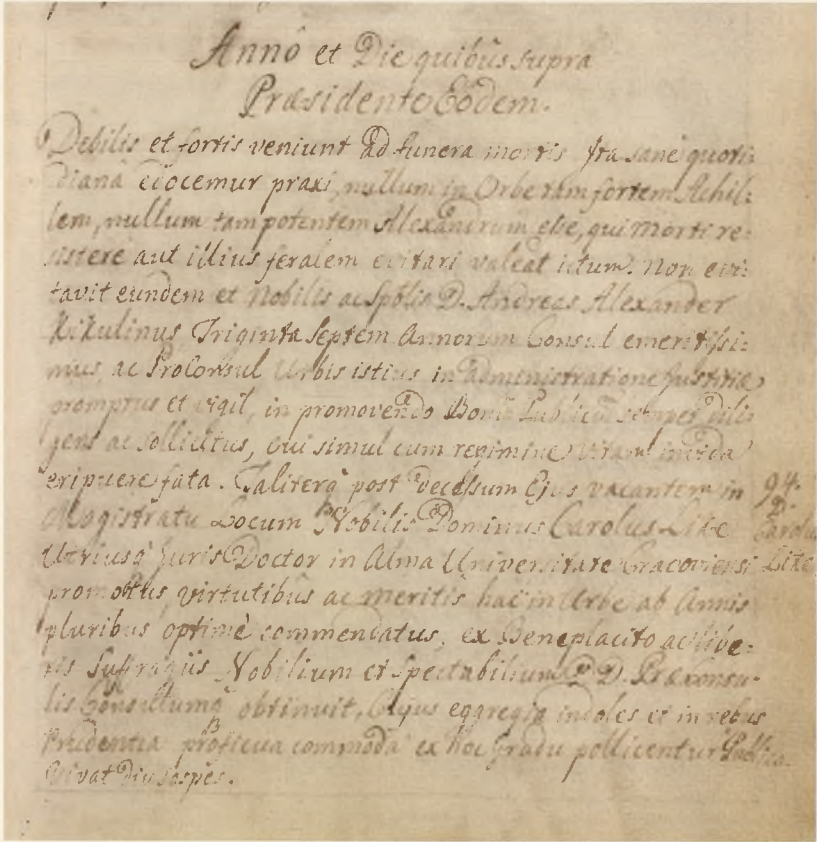 Annô et Die quibûs supra
Præsidente Eôdem.
Debilis et fortis veniunt ad funera mortis Ita sane quoti:
diana edocemur praxi, nullum in Orbe tam fortem Achil:
lem, nullum tam potentem Alexandrum esse, qui Morti re:
sistere aut illius feralem evitari valeat ictum. Non evi:
tavit eundem et Nobilis ac Sp̃blis D. Andreas Alexander
Triginta Septem Annorum Consul emeritissi:
mus, ac ProConsul Urbis istius in administratione Justitiæ
promptus et vigil, in promovendo Bonũ Publicũ semper dili:
gens ac sollicitus, cui simul cum regimine vitam invida
eripuere fata. Taliterq̃ post decessum Ejus vacantem in
Magistratu Locum Nobilis Dominus Carolus Lixe
Utriusq̃ Juris Doctor in Alma Universitate Cracoviensi
promotus, virtutibûs ac meritis hac in Urbe ab Annis
pluribus optimè commendatus, ex Beneplacito ac libe:
ris Suffragijs Nobilium et Spectabilium P. D. Præconsu:
lis Consulumq̃ obtinuit, Cujus eggregia indoles et in rebus
Prudentia proficua commoda ex hoc Gradu pollicentur Publica.
Vivat Diu sospes.
94.
D.
Carolus
Lixe